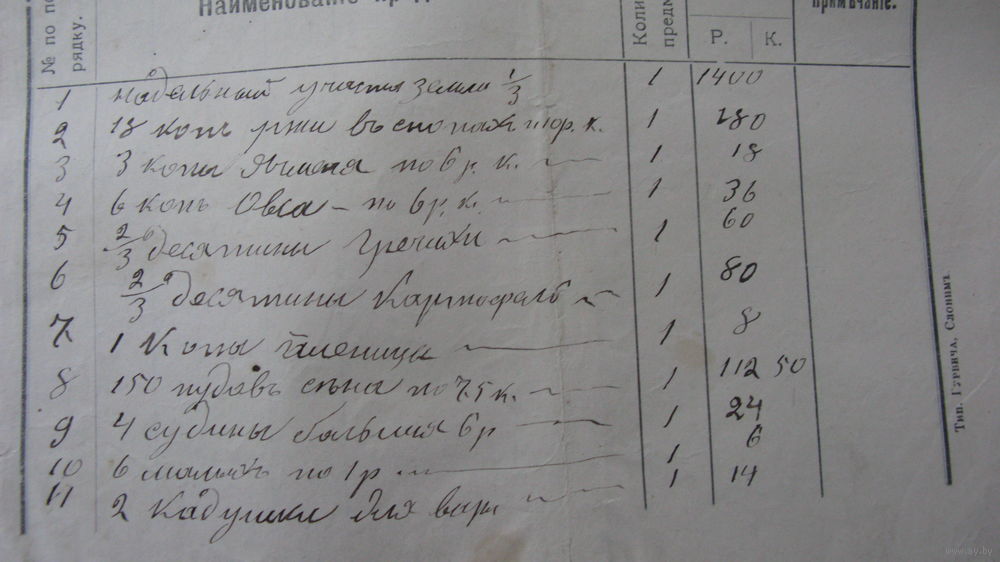 № по по рядку.
Наименованіе пред
Коли предм
Р. К.
примѣчаніе.
1 надельный участка земли 1/3 1 1400
2 18 копъ ржи въ снопахъ по 10р. к. 1 180
3 3 копы Ячменя по 6 р. к. 1 18
4 6 копъ Овса – по 6 р. к. 1 36
5 2/3 десятины Гречихи 1 60
6 2/3 десятины Картофель 1 80
7 1 Копы пшеница 1 8
8 150 пудовъ сѣна по 75 к. 1 112 50
9 4 судины большия 6 р 1 24
10 6 малыхъ по 1 р 1 6
11 2 Кадушки для 1 14
Тип. Гурвича, Слонимъ
www.ay.by